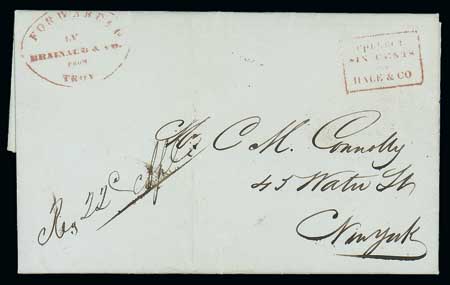 FORWARDED
BY
BRAINARD & CO.
FROM
TROY
COLLECT
SIX CENTS
FOR
HALE & CO
Mr C M. Connolly
45 Water St
New York